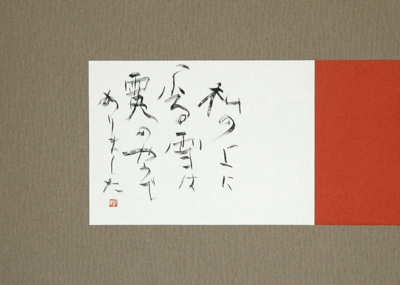 私の上に
降る雪は
霙のやうで
ありました